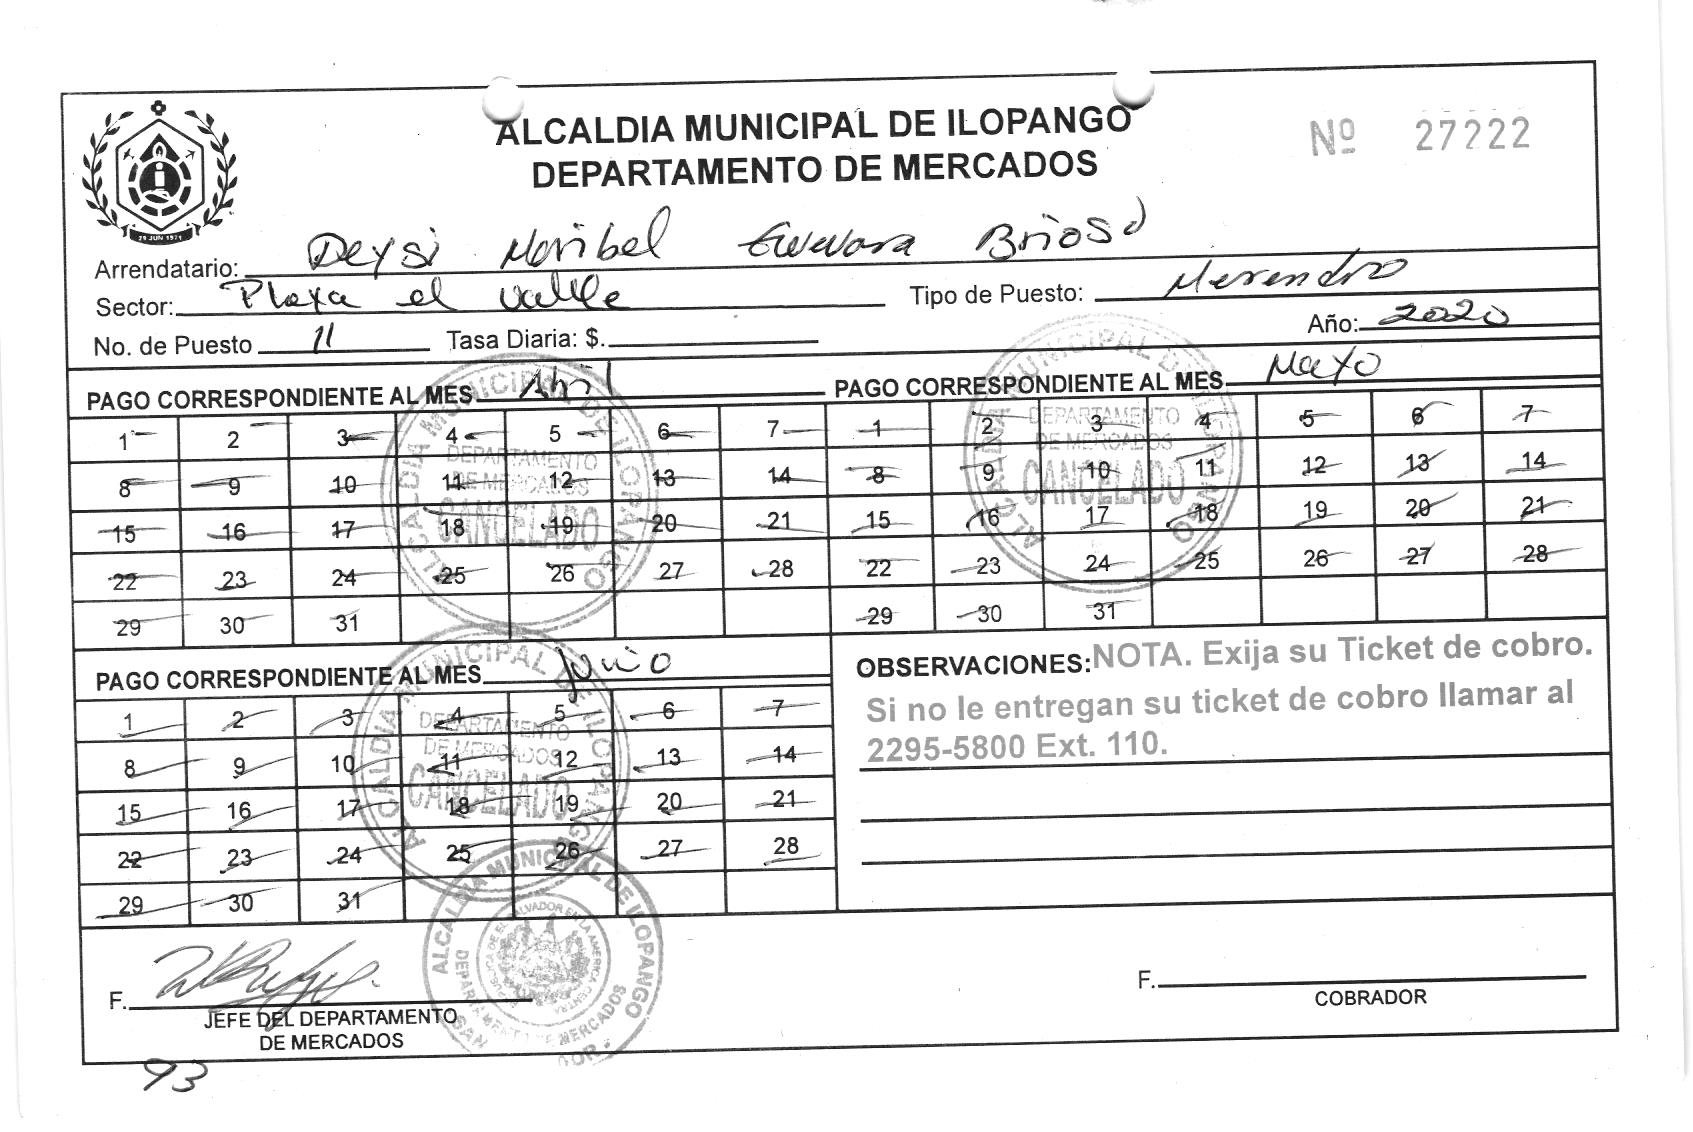 ALCALDIA MUNICIPAL DE ILOPANGO
DEPARTAMENTO DE MERCADOS
Nº 27222
29 JUN 1971
Arrendatario: Deysi Maribel Guevara Brioso
Sector: Plaza el Vallle
Tipo de Puesto: Merendro
No. de Puesto 11
Tasa Diaria: $.
Año: 2020
PAGO CORRESPONDIENTE AL MES Abril
1 2 3 4 5 6 7
8 9 10 11 12 13 14
15 16 17 18 19 20 21
22 23 24 25 26 27 28
29 30 31
ALCALDIA MUNICIPAL DE ILOPANGO
DEPARTAMENTO
DE MERCADOS
CANCELADO
PAGO CORRESPONDIENTE AL MES Mayo
1 2 3 4 5 6 7
8 9 10 11 12 13 14
15 16 17 18 19 20 21
22 23 24 25 26 27 28
29 30 31
ALCALDIA MUNICIPAL DE ILOPANGO
DEPARTAMENTO
DE MERCADOS
CANCELADO
PAGO CORRESPONDIENTE AL MES Junio
1 2 3 4 5 6 7
8 9 10 11 12 13 14
15 16 17 18 19 20 21
22 23 24 25 26 27 28
29 30 31
ALCALDIA MUNICIPAL DE ILOPANGO
DEPARTAMENTO
DE MERCADOS
CANCELADO
OBSERVACIONES: NOTA. Exija su Ticket de cobro.
Si no le entregan su ticket de cobro llamar al
2295-5800 Ext. 110.
ALCALDIA MUNICIPAL DE ILOPANGO
DEPARTAMENTO DE MERCADOS
F.
JEFE DEL DEPARTAMENTO
DE MERCADOS
F.
COBRADOR
93